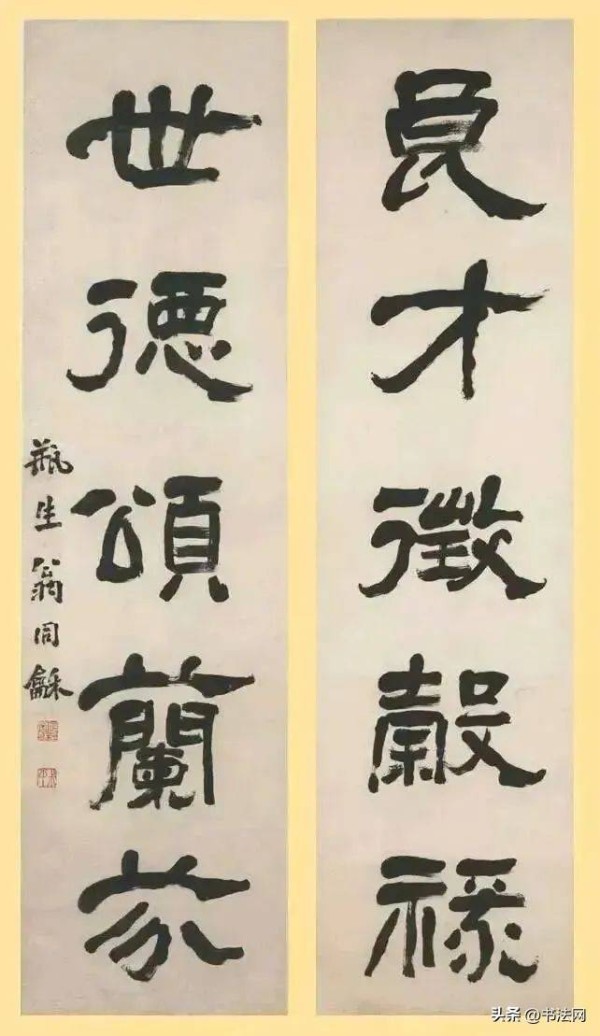 良才徵穀祿
世德頌蘭芬
瓶生翁同龢
头条 @书法网